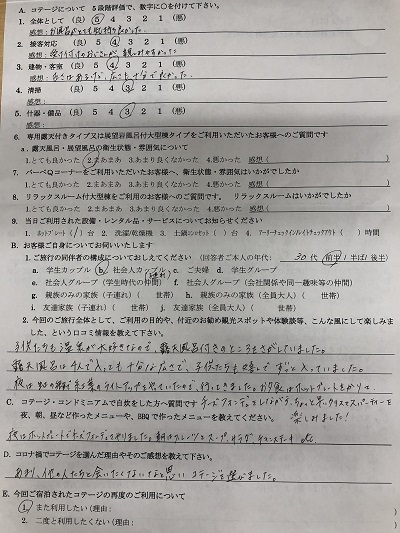 A. コテージについて 5段階評価で、数字に○を付けて下さい。
1. 全体として (良) 5 4 3 2 1 (悪)
感想: お風呂がとても気持ち良かった。
2. 接客対応 (良) 5 4 3 2 1 (悪)
感想:
3. 建物・客室 (良) 5 4 3 2 1 (悪)
感想:
4. 清掃 (良) 5 4 3 2 1 (悪)
感想:
5. 什器・備品 (良) 5 4 3 2 1 (悪)
感想:
6. 専用露天付きタイプ又は展望岩風呂付大型棟タイプをご利用いただいたお客様へのご質問です
a. 露天風呂・展望風呂の衛生状態・雰囲気について
1.とても良かった 2.まあまあ 3.あまり良くなかった 4.悪かった 感想( )
7. バーベQコーナーをご利用いただいたお客様へ、衛生状態・雰囲気はいかがでしたか
1.とても良かった 2.まあまあ 3.あまり良くなかった 4.悪かった 感想( )
8. リラックスルーム付大型棟をご利用いただいたお客様へのご質問です。 リラックスルームはいかがでしたか
1.とても良かった 2.まあまあ 3.あまり良くなかった 4.悪かった 感想( )
9. 当日ご利用された設備・レンタル品・サービスについてお知らせください
1. ホットプレート( 1 )台 2. 洗濯/乾燥機 3. 土鍋セット( )台 4. アーリーチェックイン/レイトチェックアウト( )時間
B. お客様ご自身についてお伺いいたします
1. ご旅行の同伴者の構成についておしえてください (回答者ご本人の年代: 30 代 前半 1 半ば 1 後半)
a. 学生カップル b. 社会人カップル (子連れ) c. ご夫婦 d. 学生グループ
e. 社会人グループ (学生時代の仲間) f. 社会人グループ (会社関係や同一趣味等の仲間)
g. 親族のみの家族 (子連れ) ( 世帯) h. 親族のみの家族 (全員大人) ( 世帯)
i. 友達家族 (子連れ) ( 世帯) j. 友達家族 (全員大人) ( 世帯)
2. 今回のご旅行全体として、ご利用の目的や、付近のお勧め観光スポットや体験談等、こんな風にして楽しみました、という口コミ情報を教えて下さい。
子供たちも温泉が大好きなので、露天風呂付きのところをさがしていました。
露天風呂は4人で入っても十分な広さで、子供たちも喜んでずっと入っていました。
C. コテージ・コンドミニアムで自炊をした方へ質問です
夜、朝、昼など作ったメニューや、BBQで作ったメニューを教えてください。
楽しみました!
夜はホットプレートでチーズフォンデュ
D. コロナ禍でコテージを選んだ理由やそのご感想を教えて下さい。
あまり、他の人たちと会いたくないなと思い コテージを選びました。
E. 今回ご宿泊されたコテージの再度のご利用について
1. また利用したい (理由:
2. 二度と利用したくない (理由: